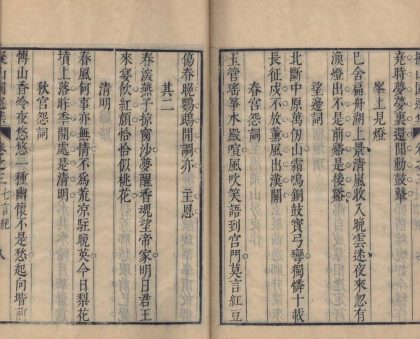 竟時夢夢裏還聞動鼓鼙
峯上見燈
已舍扁舟湖上景清嵐收入晚雲迷夜來忽有
漁燈出不是前谿是後谿
望邊詞
北斷中原萬仞山霜鳴銅鼓寶弓彎獨憐十載
長征戍不放薰風出漢關
春宮怨詞
玉管瑤箏水殿喧風吹笑語到宮門莫言紅豆
傷春晚鸚鵡閒調亦 主恩
其二
春淡燕子掠窗沙夢醒香魂望帝家明日君王
來宴飲紅顏恰恰似桃花
清明
春風何事亦無情不爲荒凉駐晚英今日梨花
墳上落昨季開處是清明
秋宮怨詞
傅山香冷夜悠悠一種幽懷不是愁起向堦前
卷之三 七言絕 八